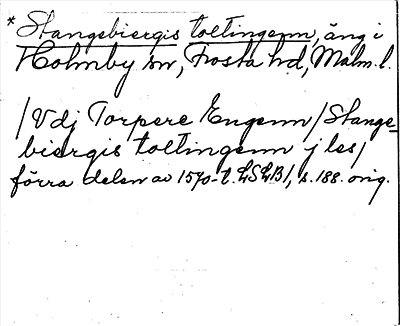 * Stangebiergis toltingenn, äng i
Holmby sn, Frosta hd, Malm. l.
/Vdj Torpere Engenn/Stange=
biergis toltingenn j les/
förra delen av 1570-t. LSLB1, s. 188. orig.